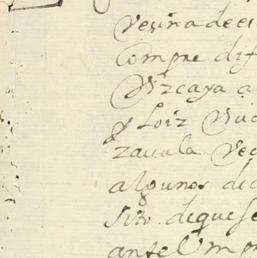 vesina de es
Compre dif
Vizcaya a
y Loiz
zavala vec
algunos de
Siz. de que se
ante Um pr